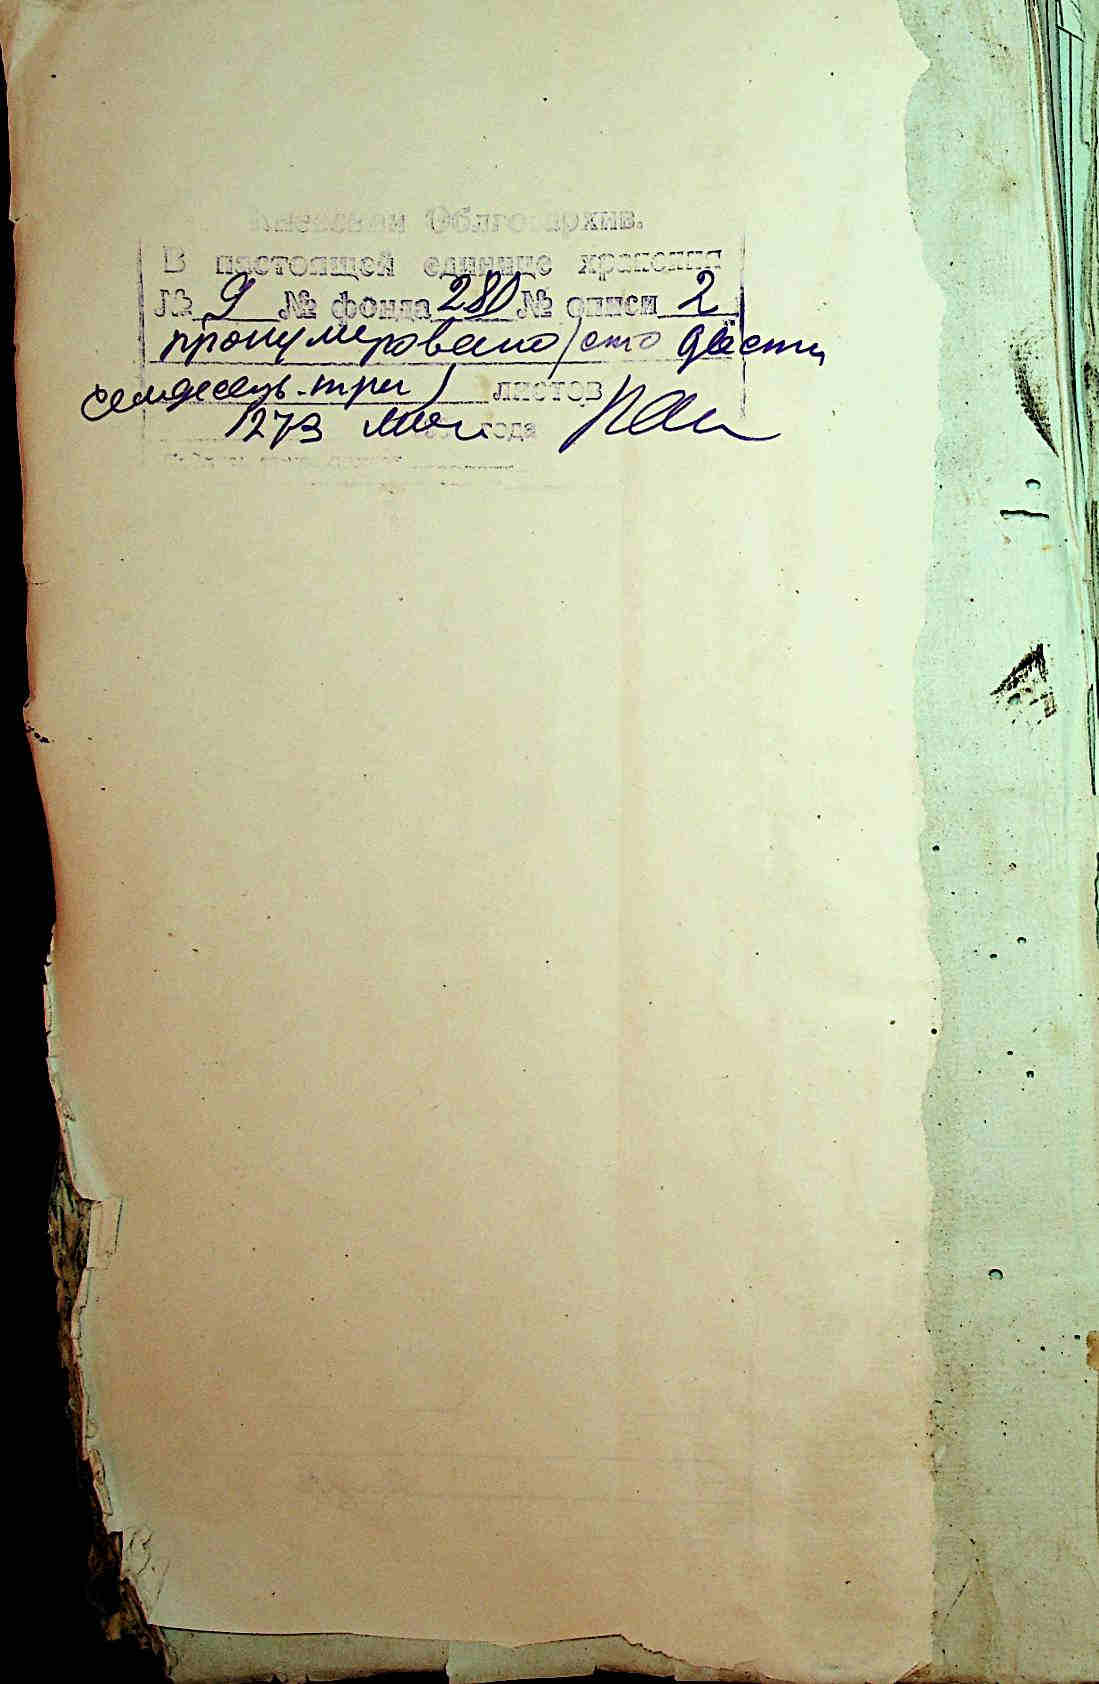 Киевский Облгосархив.
В настоящей единице хранения
№ 9 № фонда 280 № описи 2
пронумеровано (сто двести
семдесят три) листов
273 года